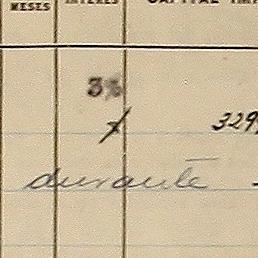 MESES INTERÉS CAPITAL IMP
3%
329
durante